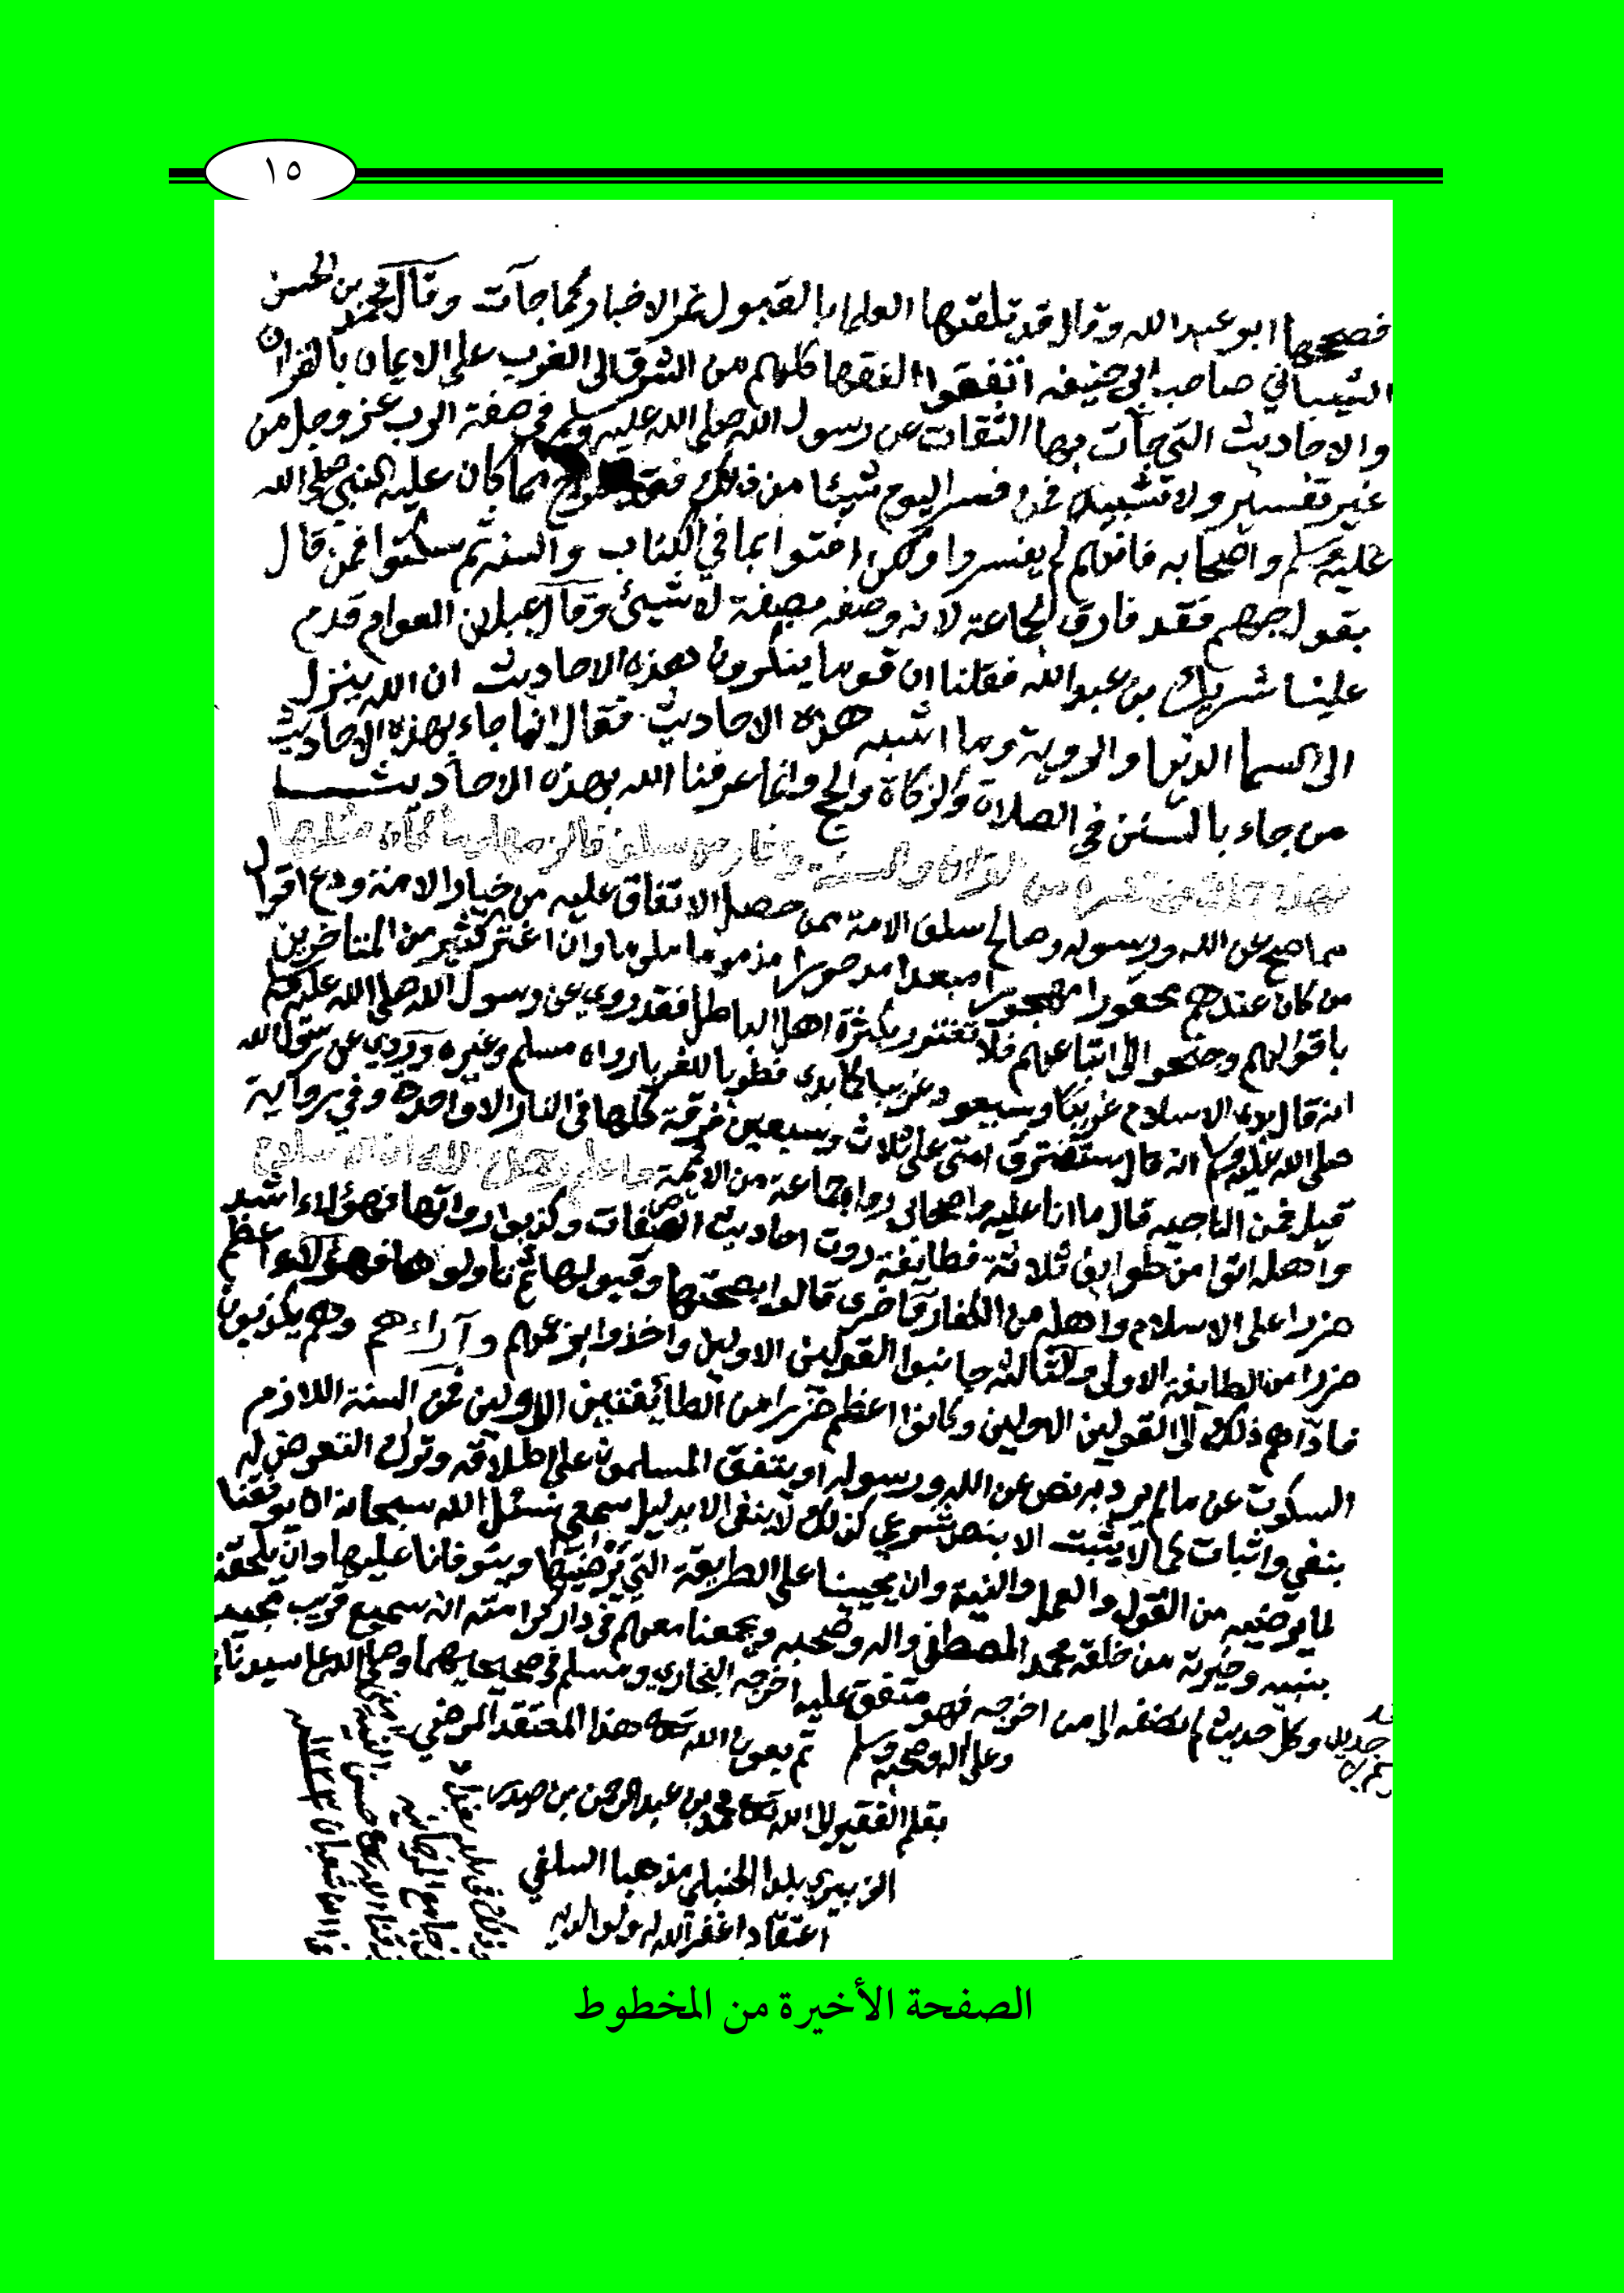 ١٥
فصححها ابو عبد الله وقال قد تلقتها العلما بالقبول نمر الاخبار كما جات وقال محمد بن الحسن
الشيباني صاحب ابي حنيفه اتفقوا الفقها كلهم من الشرق الى الغرب على الايمان بالقران
والاحاديث التي جآت بها الثقات عن رسول الله صلى الله عليه وسلم في صفة الرب عز وجل من
غير تفسير ولا تشبيه فمن فسر اليوم شيئا من ذلك فقد خرج مما كان عليه النبي صلى الله
عليه وسلم واصحابه فانهم لم يفسروا ولكن افتوا بما في الكتاب والسنه ثم سكتوا فمن قال
بقول جهم فقد فارق الجماعة لانه وصفه بصفة لا شيئ وقال عباد بن العوام قدم
علينا شريك بن عبد الله فقلنا ان قوما ينكرون هذه الاحاديث ان الله ينزل
الى السما الدنيا والروية وما اشبه هذه الاحاديث فقال انما جاء بهذه الاحاديث
من جاء بالسنن في الصلاة والزكاة والحج وانما عرفنا الله بهذه الاحاديث
فهذه جملة مختصرة من القران والسنة واثار من سلف فالزمها وما كان مثلها
مما صح عن الله ورسوله وصالح سلف الامة ممن حصل الاتفاق عليه من خيار الامة ودع اقوال
من كان عندهم محقورا مهجورا مبعدا مدحورا مذموما ملوما وان اغتر كثير من المتاخرين
باقوالهم وجنحوا الى اتباعهم فلا تغتر بكثرة اهل الباطل فقد روي عن رسول الله صلى الله عليه وسلم
انه قال بدى الاسلام غريبا وسيعود غريبا كما بدى فطوبا للغربا رواه مسلم وغيره وروي عن رسول الله
صلى الله عليه وسلم انه قال ستفترق امتي على ثلاث وسبعين فرقة كلها في النار الا واحده وفي رواية
قيل فمن الناجيه قال ما انا عليه واصحابي رواه جماعة من الائمة واعلم رحمك الله ان الاسلام
واهله اتوا من طوايف ثلاثة فطايفة روت احاديث الصفات وكذبوا رواتها فهؤلاء اشد
ضررا على الاسلام واهله من الكفار واخرى قالوا بصحتها وقبولها ثم تاولوها فهؤلاء اعظم
ضررا من الطايفة الاولى والثالثه جانبوا القولين الاولين واخذوا بزعمهم وآراءهم وهم يكذبون
فادآهم ذلك الى القولين الاولين وكانوا اعظم ضررا من الطائفتين الاولين فمن السنة اللازم
السكوت عن ما لم يرد به نص عن الله ورسوله او يتفق المسلمون على اطلاقه وترك التعرض له
بنفي واثبات كما لا يثبت الا بنص شرعي كذلك لا ينفى الا بدليل سمعي نسئل الله سبحانه ان يوفقنا
لما يرضيه من القول والعمل والنية وان يحيينا على الطريقة التي يرضيها ويتوفانا عليها وان يلحقنا
بنبيه وخيرته من خلقه محمد المصطفى واله وصحبه ويجمعنا معهم في دار كرامته انه سميع قريب مجيب
وكل حديث لم نضفه الى من اخرجه فهو متفق عليه اخرجه البخاري ومسلم في صحيحيهما وصلى الله على سيدنا
وعلى اله وصحبه وسلم
تم بعون الله تعالى هذا المعتقد المرضي
بقلم الفقير الى الله تعالى محمد بن عبد الرحمن بن
الزبيري بلدا الحنبلي مذهبا السلفي
اعتقادا غفر الله له ولوالديه
الصفحة الأخيرة من المخطوط